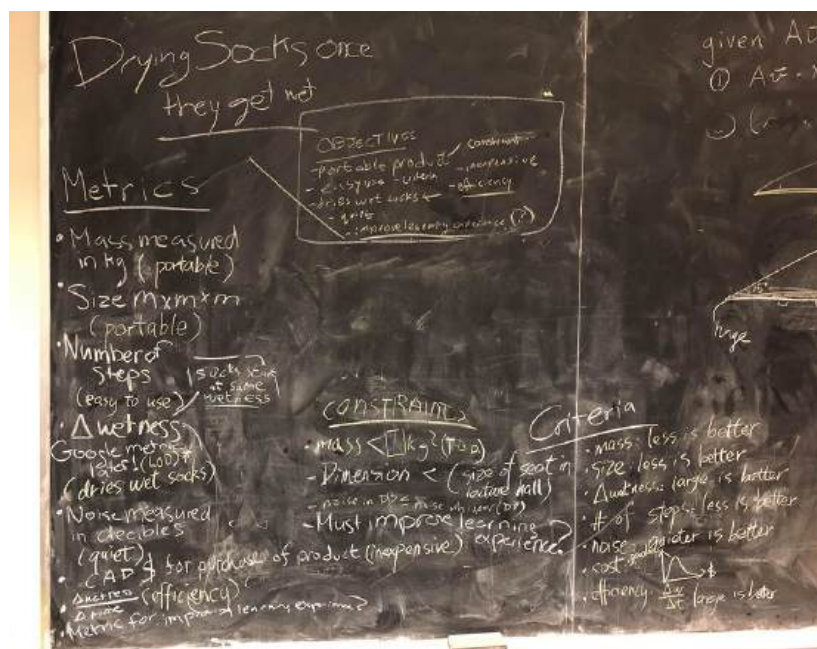 Drying Socks once
they get wet
OBJECTIVES
- portable product
constraint
- inexpensive
- easy to use
- efficiency
- dries wet socks
- quiet
- improve learning experience (?)
Metrics
• Mass measured
in kg (portable)
• Size m x m x m
(portable)
• Number of
steps
(easy to use)
socks start
at same
wetness
• Δ wetness
Google metric
later!
(dries wet socks)
• Noise measured
in decibles
(quiet)
• CAD $ for purchase of product (inexpensive)
• Δ wetness
Δ time
(efficiency)
• Metric for improving learning experience?
CONSTRAINTS
- mass < [ ] kg? (TBD)
- Dimension < (size of seat in
lecture hall)
- noise in
- Must improve learning
experience?
Criteria
• mass: less is better
• size: less is better
• Δwetness: large is better
• # of steps: less is better
• noise: quieter is better
• cost:
$
• efficiency: Δw
Δt
large is better
given
①
hinge